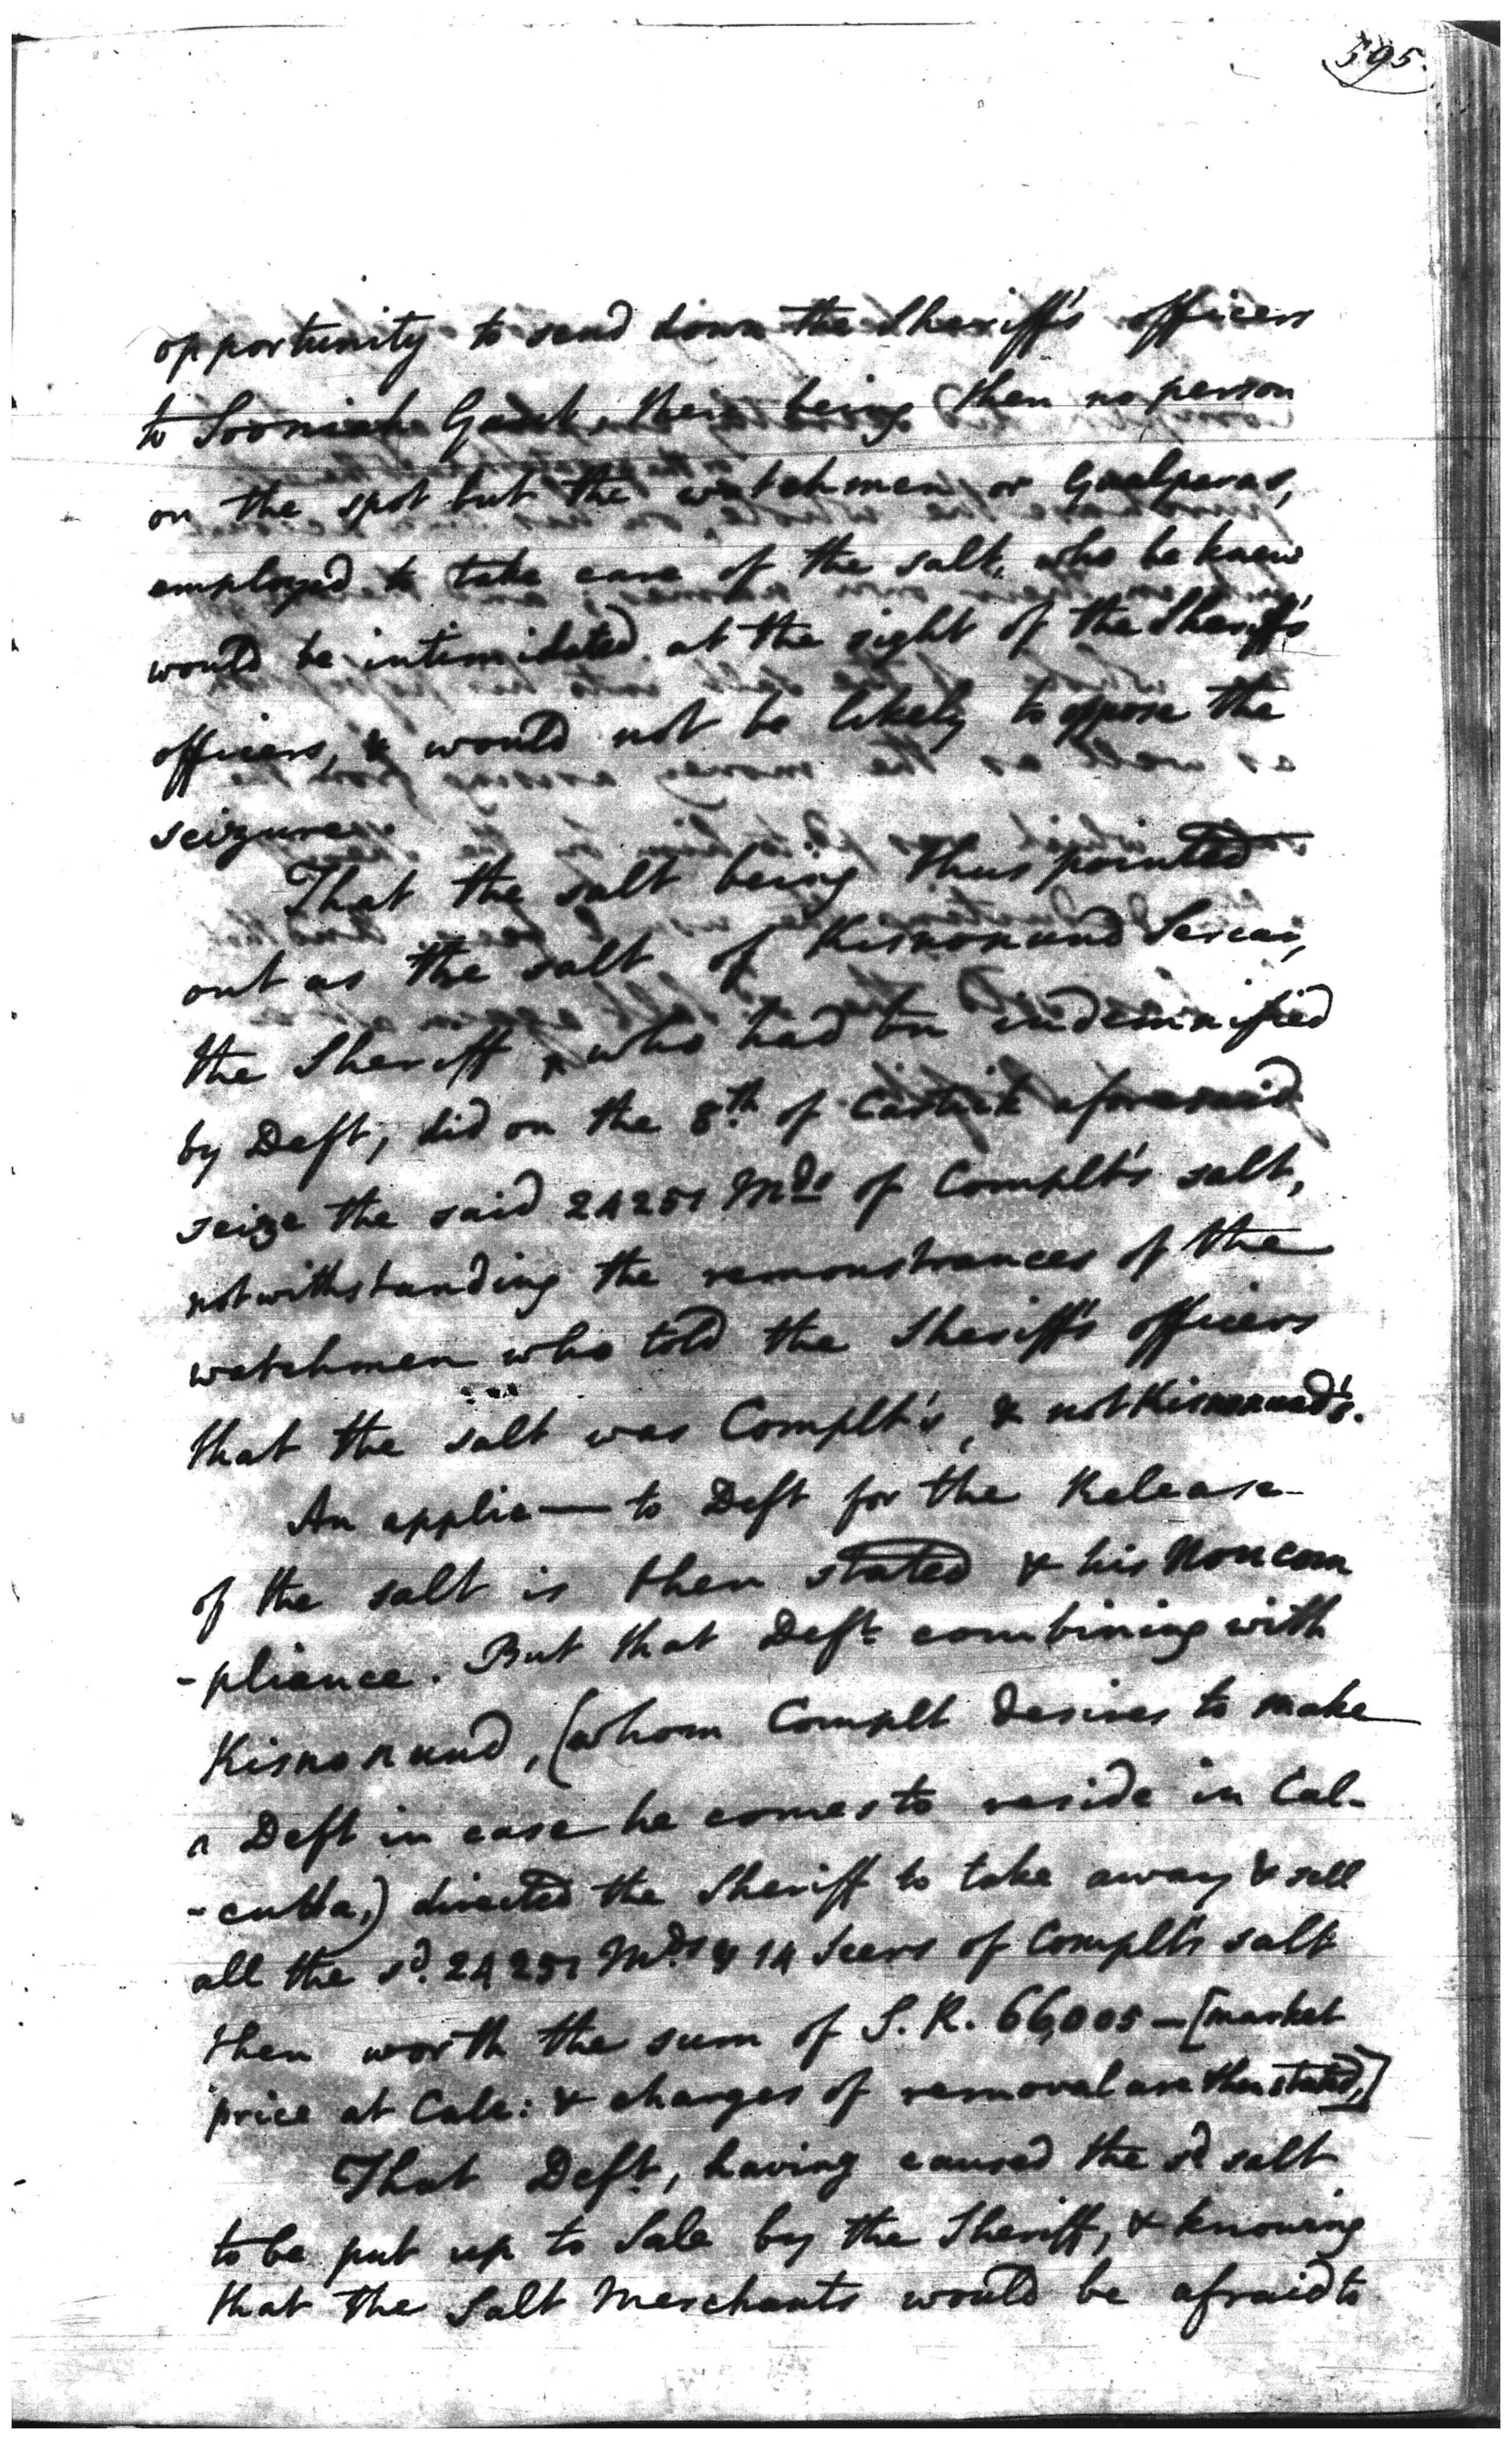 595.
opportunity to send down the Sheriff's officers
to Sooniah Gaut, there being then no person
on the spot but the watchmen or Goalparas,
employed to take care of the salt, who he knew
would be intimidated at the sight of the Sheriff's
officers, & would not be likely to oppose the
seizure.
That the salt being thus pointed
out as the salt of Kisnonund Sercar,
the Sheriff, who had bn indemnified
by Deft, did on the 8th of Cartick aforesaid
seize the said 24251 Mds of Complt's salt,
notwithstanding the remonstrances of the
watchmen who told the Sheriff's officers
that the salt was Complt's, & not Kisnonund's.
An applic— to Deft for the Release
of the salt is then stated & his Noncom
-pliance. But that Deft combining with
Kisnonund, (whom Complt desires to make
a Deft in case he comes to reside in Cal-
-cutta,) directed the Sheriff to take away & sell
all the sd. 24251 Mds & 14 Seers of Complt's salt
then worth the sum of S. R. 66,005 — [market
price at Calc: & charges of removal are then stated,]
That Deft, having caused the sd salt
to be put up to Sale by the Sheriff, & knowing
that the Salt Merchants would be afraid to